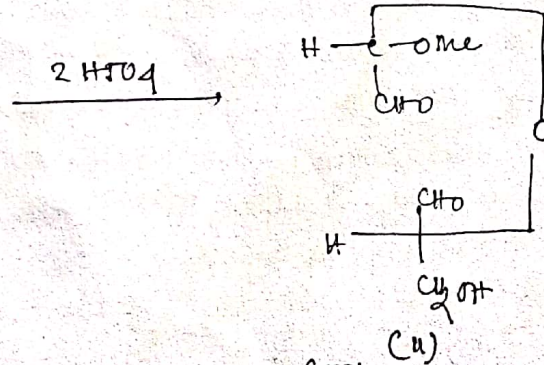 2 HIO4
H — C — OMe
CHO
O
CHO
H
CH2OH
(11)